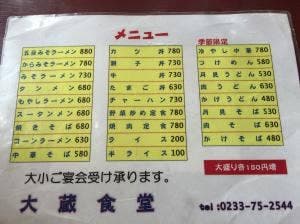 メニュー
五目みそラーメン 880
からみそラーメン 780
みそラーメン 730
タンメン 680
もやしラーメン 680
スータンメン 680
焼きそば 680
コーンラーメン 630
中華そば 580
カツ丼 780
親子丼 730
牛丼 730
たまご丼 630
チャーハン 730
野菜炒め定食 780
焼肉定食 780
ライス 200
半ライス 100
季節限定
冷やし中華 780
つけめん 580
月見うどん 530
肉うどん 630
かけうどん 480
月見そば 530
肉そば 630
かけそば 480
大盛り各150円増
大小ご宴会受け承ります。
大蔵食堂
tel:0233-75-2544